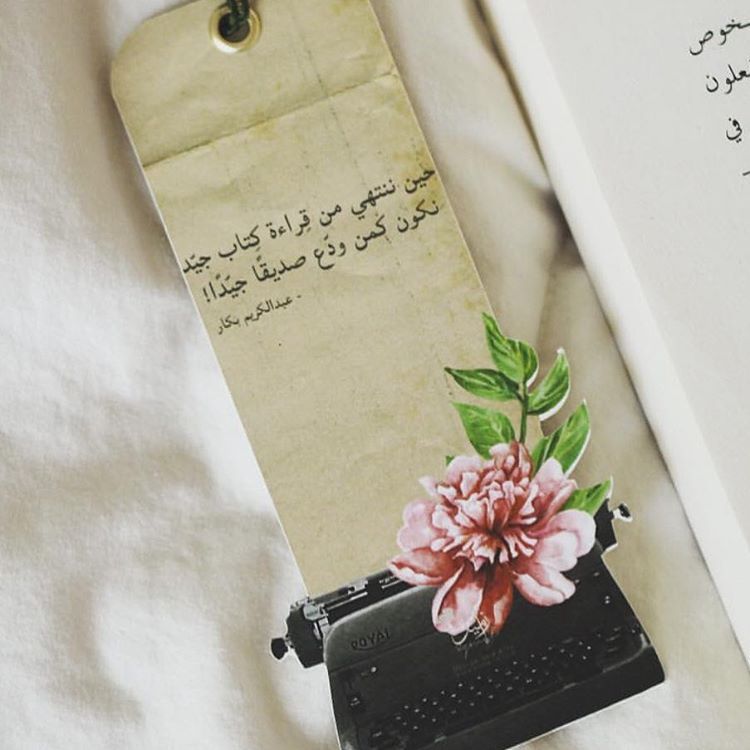 حين ننتهي من قِراءة كِتاب جيّد
نكون كَمن ودّع صديقًا جيّدًا!
- عبدالكريم بكار
ROYAL
شخوص
في